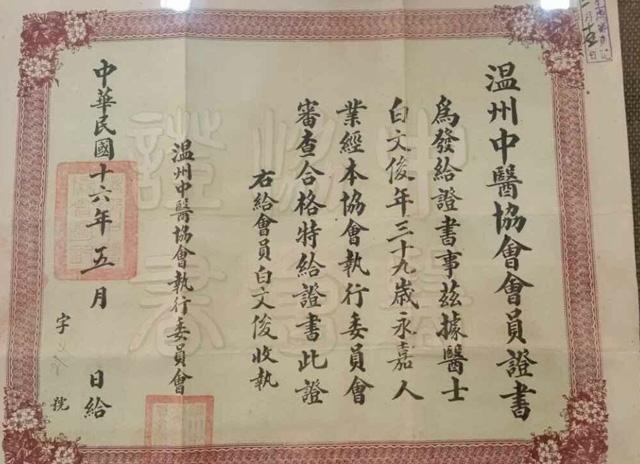 温州中醫協會會員證書
爲發給證書事茲據醫士
白文俊年三十九歲永嘉人
業經本協會執行委員會
審查合格特給證書此證
右給會員白文俊收執
温州中醫協會執行委員會
中華民國十六年五月 日給
字 號
中醫
協會
證書